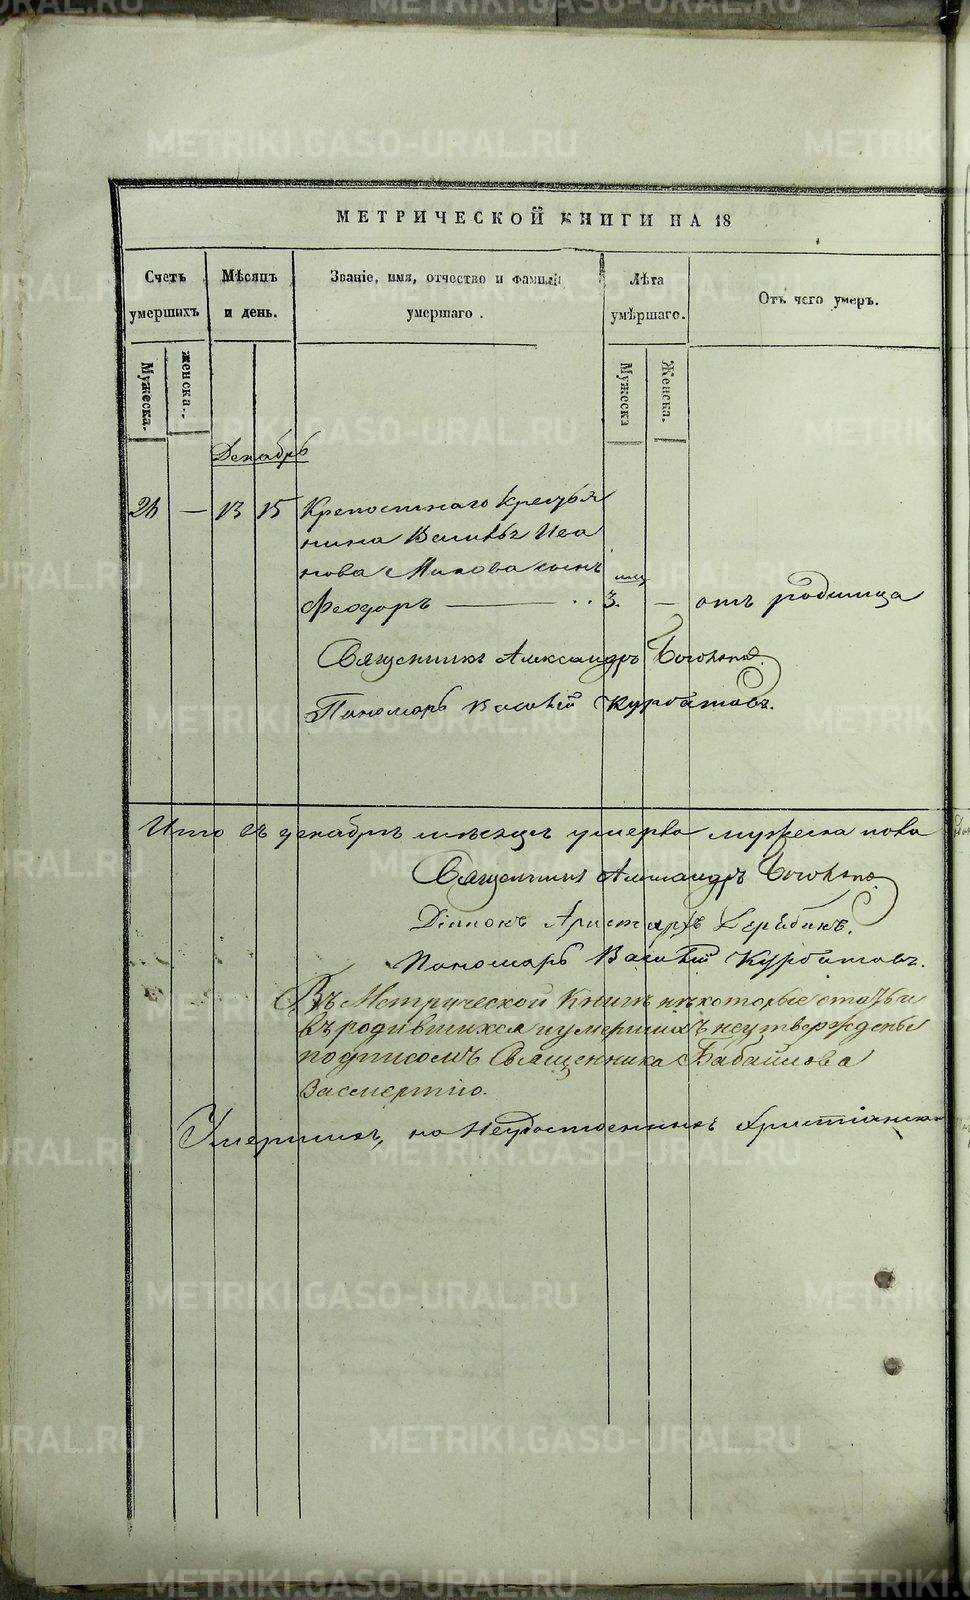 METRIKI.GASO-URAL.RU
МЕТРИЧЕСКОЙ КНИГИ НА 18
Счетъ умершихъ
Мѣсяцъ и день.
Званіе, имя, отчество и фамилія умершаго.
Лѣта умершаго.
Отъ чего умеръ.
Мужеска.
женска.
Мужеска
Женска.
Декабрь
— 13 15 Крепостнаго крестья
нина Ива
нова сынъ
Феодоръ — 3. — отъ родимца
Священникъ Александръ
Пономарь Василій Курбатовъ.
Итого въ декабрѣ мѣсяцѣ умерло мужеска пола
Священникъ Александръ
Діаконъ Аристархъ Дерябинъ.
Пономарь Василій Курбатовъ.
Въ Метрической Книгѣ нѣкоторые статьи
въ родившихся и умершихъ неутверждены
подписомъ Священника Бабайлова
За смертію.
Умершихъ, но Неудостоенныхъ Христіанска